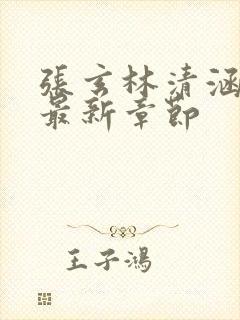 張玄林清涵
最新章節
王子鴻